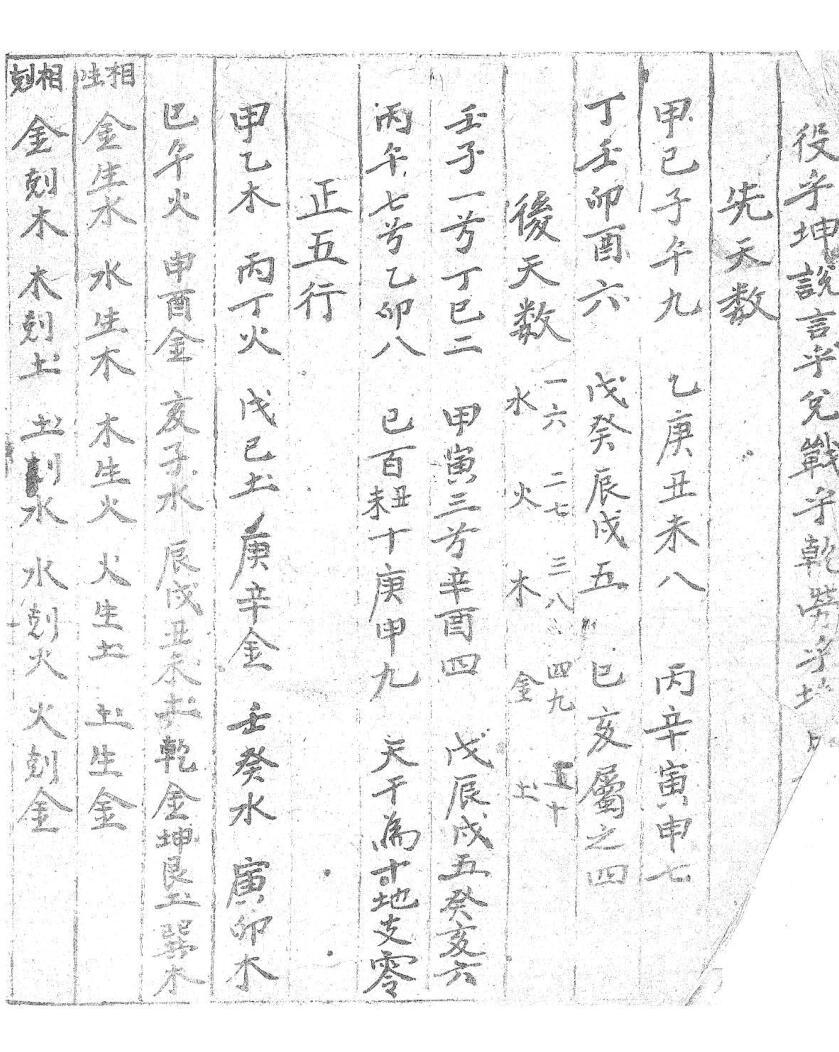 役乎坤說言乎兌戰乎乾勞乎坎
先天数
甲己子午九 乙庚丑未八 丙辛寅申七
丁壬卯酉六 戊癸辰戌五 巳亥屬之四
後天数 一六水 二七火 三八木 四九金 五十土
壬子一兮丁巳二 甲寅三兮辛酉四 戊辰戌五癸亥六
丙午七兮乙卯八 己百丑未十庚申九 天干為十地支零
正五行
甲乙木 丙丁火 戊己土 庚辛金 壬癸水 寅卯木
巳午火 申酉金 亥子水 辰戌丑未土 乾金坤艮土巽木
相生 金生水 水生木 木生火 火生土 土生金
相剋 金剋木 木剋土 土剋水 水剋火 火剋金